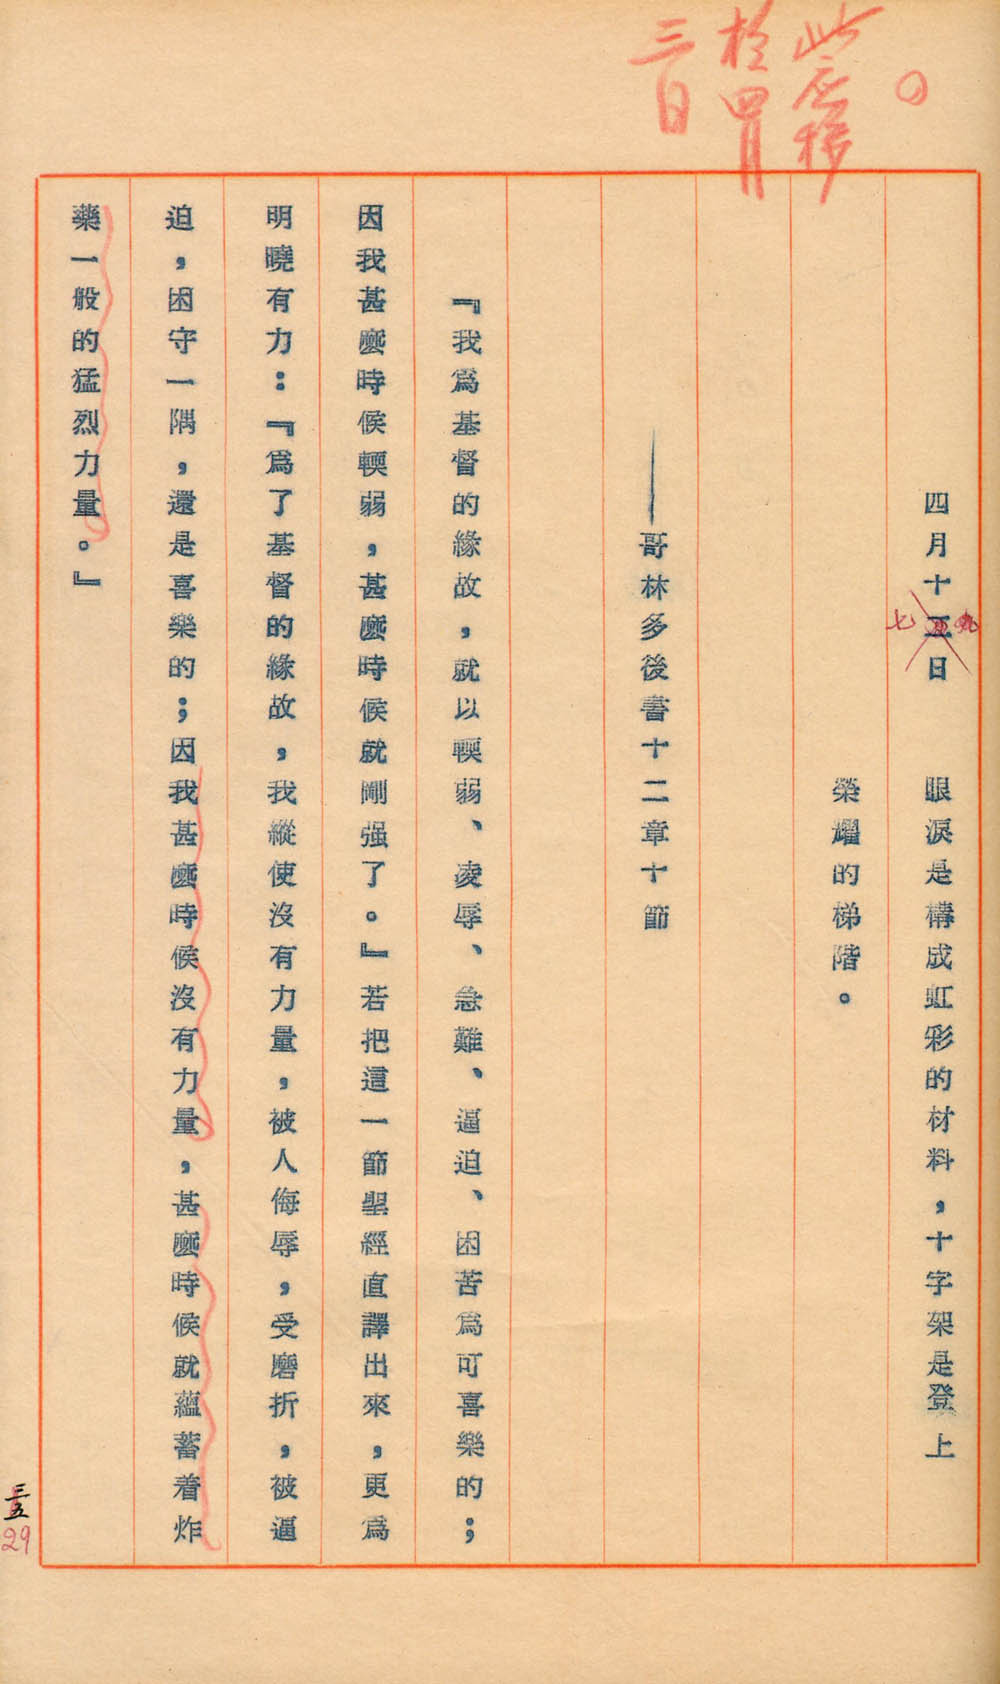 此應移
於四月
三日
四月十五日　眼淚是構成虹彩的材料，十字架是登上
七
榮耀的梯階。
——哥林多後書十二章十節
『我爲基督的緣故，就以輭弱、凌辱、急難、逼迫、困苦爲可喜樂的；
因我甚麼時候輭弱，甚麼時候就剛强了。』若把這一節聖經直譯出來，更爲
明曉有力：『爲了基督的緣故，我縱使沒有力量，被人侮辱，受磨折，被逼
迫，困守一隅，還是喜樂的；因我甚麼時候沒有力量，甚麼時候就蘊蓄着炸
藥一般的猛烈力量。』
三五
29